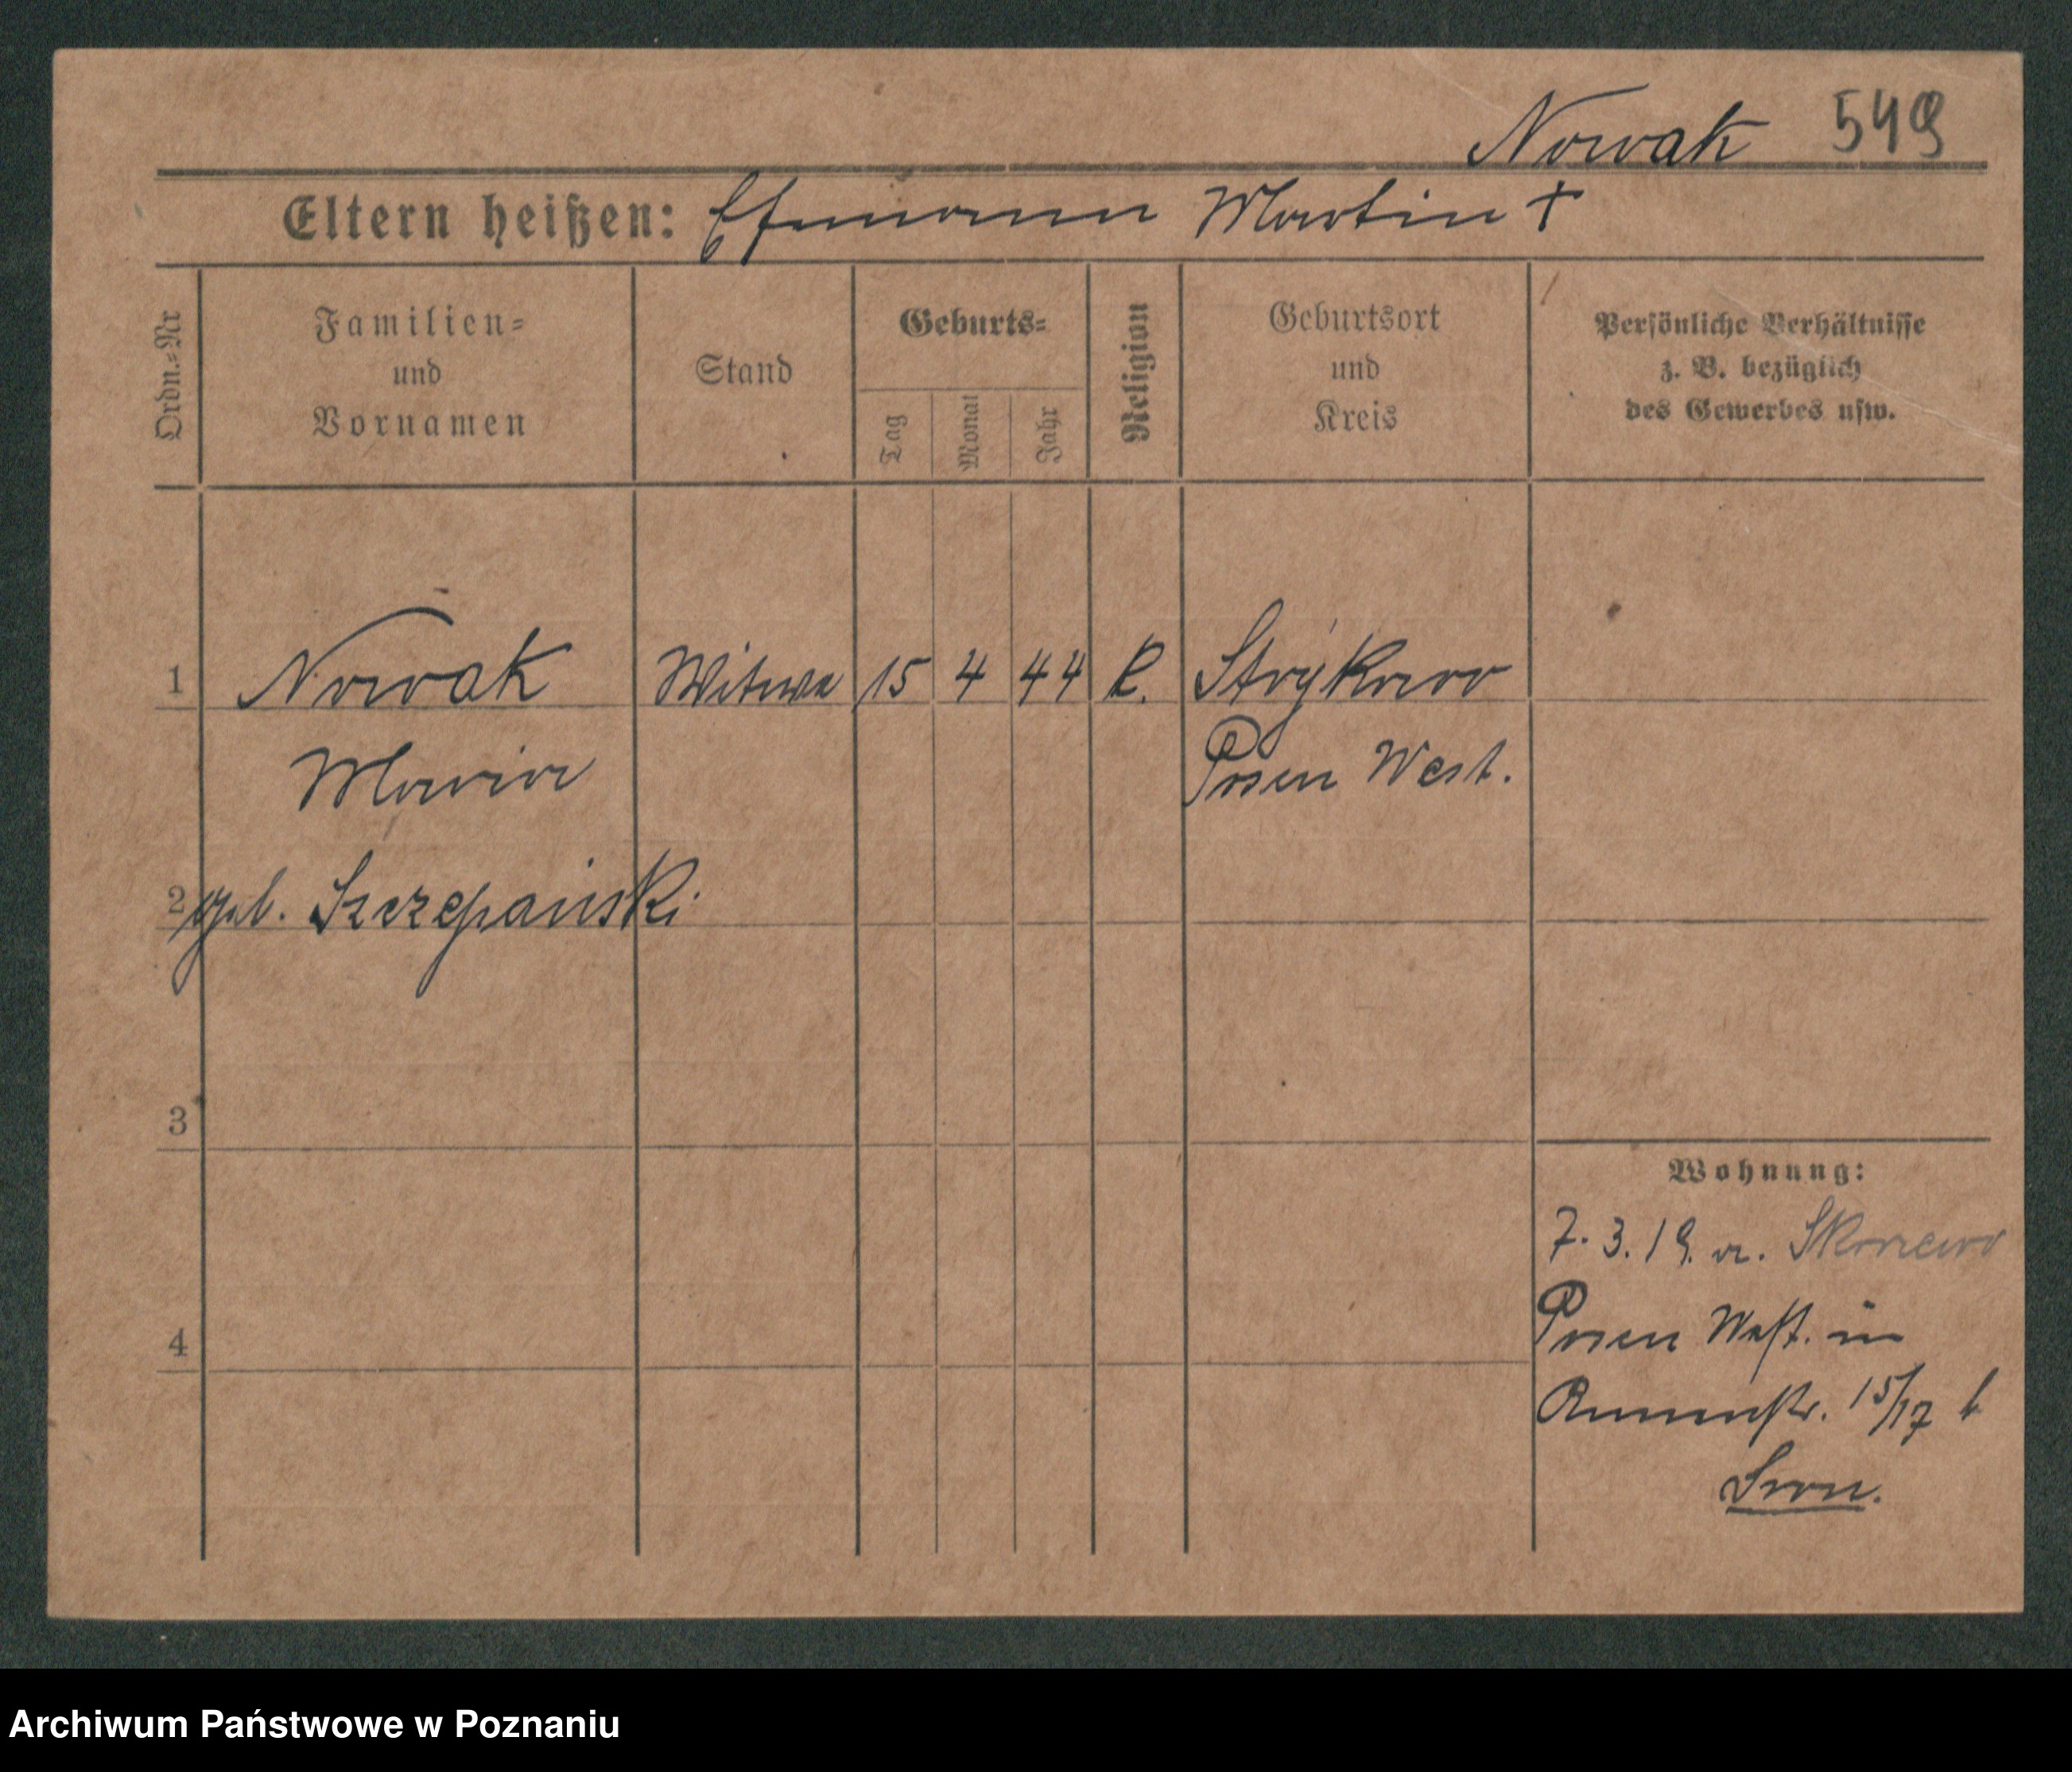 Nowak 549
Eltern heißen: Ehemann Martin +
Ordn.-Nr
Familien-
und
Vornamen
Stand
Geburts-
Tag
Monat
Jahr
Religion
Geburtsort
und
Kreis
Persönliche Verhältnisse
z. B. bezüglich
des Gewerbes usw.
1 Nowak Witwe 15 4 44 k. Strykowo
Maria Posen West.
2 geb. Szczepański
3
Wohnung:
7. 3. 19. v.
4
Posen West. in
15/17 b
Archiwum Państwowe w Poznaniu